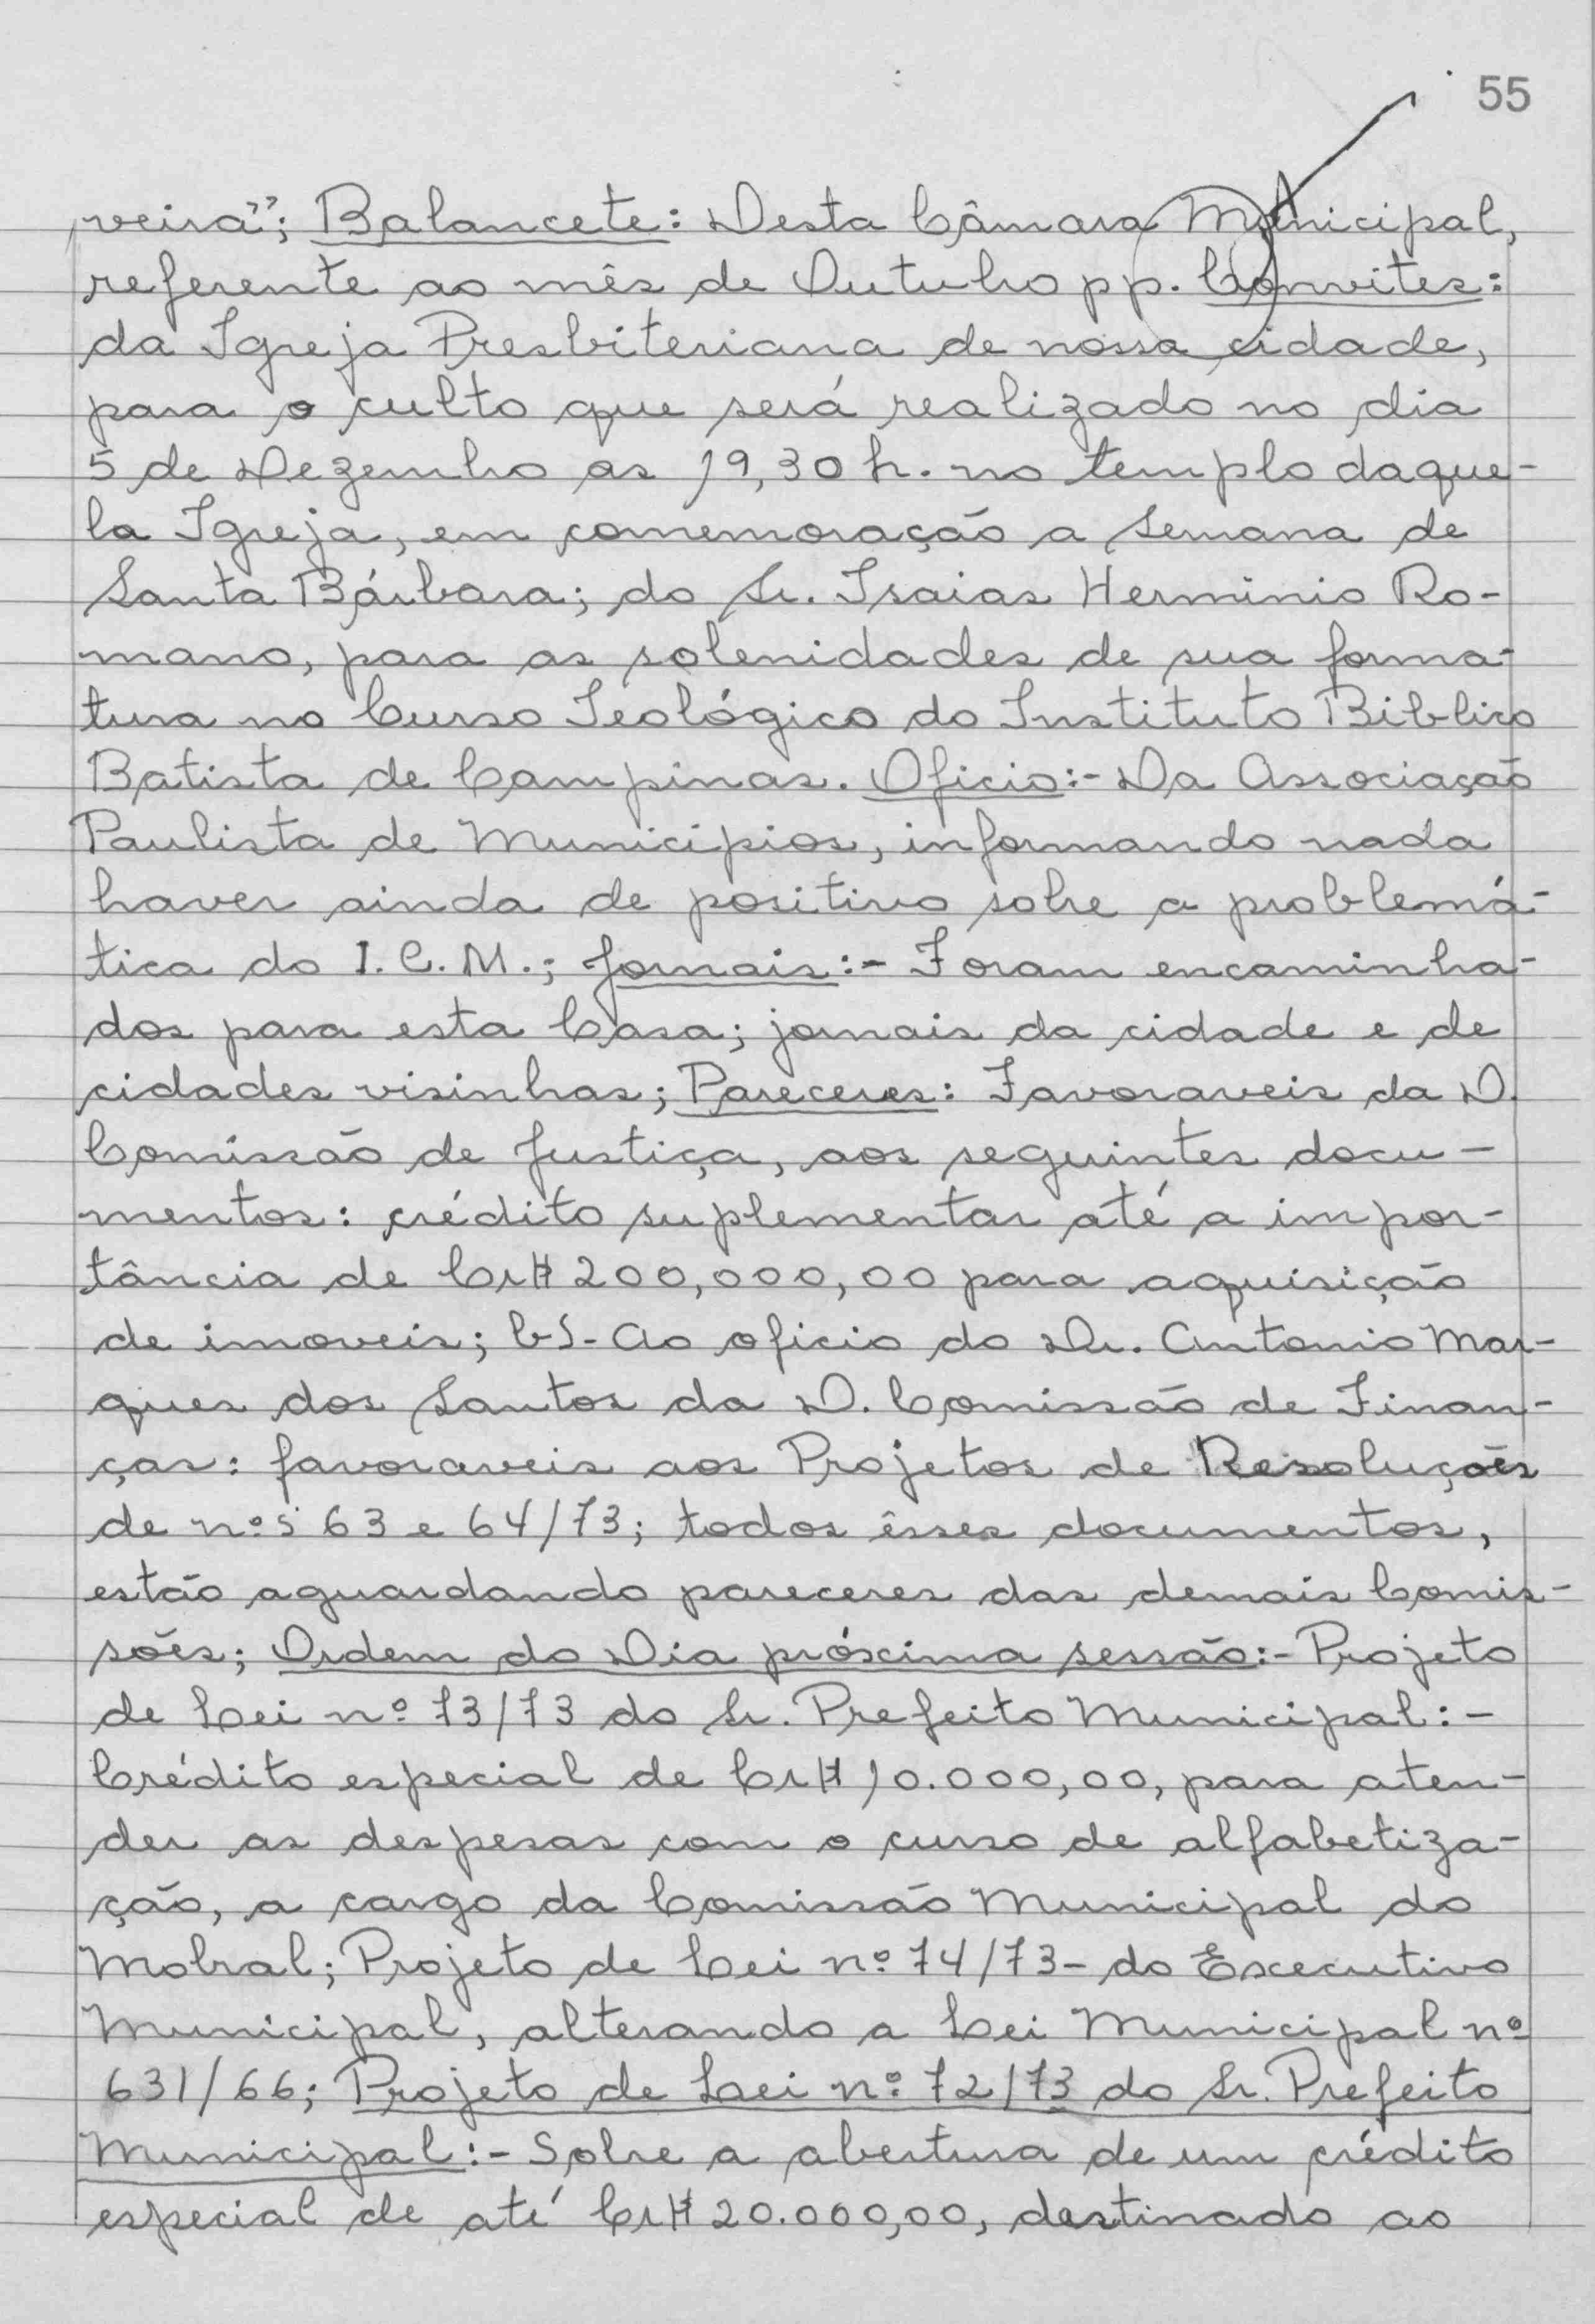 55
veira"; Balancete: Desta Câmara Municipal,
referente ao mês de Outubro pp. Convites:
da Igreja Presbiteriana de nossa cidade,
para o culto que será realizado no dia
5 de Dezembro as 19,30 h. no templo daque-
la Igreja, em comemoração a Semana de
Santa Bárbara; do Sr. Isaias Herminio Ro-
mano, para as solenidades de sua forma-
tura no Curso Teológico do Instituto Biblico
Batista de Campinas. Oficio:- Da Associação
Paulista de Municipios, informando nada
haver ainda de positivo sobre a problemá-
tica do I.C.M.; Jornais:- Foram encaminha-
dos para esta Casa; jornais da cidade e de
cidades visinhas; Pareceres: Favoraveis da D.
Comissão de Justiça, aos seguintes docu-
mentos: crédito suplementar até a impor-
tância de Cr$ 200,000,00 para aquisição
de imoveis; b)- Ao oficio do Dr. Antonio Mar-
ques dos Santos da D. Comissão de Finan-
ças: favoraveis aos Projetos de Resoluções
de nºs 63 e 64/73; todos êsses documentos,
estão aguardando pareceres das demais Comis-
sões; Ordem do Dia próxima sessão:- Projeto
de Lei nº 73/73 do Sr. Prefeito Municipal:-
Crédito especial de Cr$ 10.000,00, para aten-
der as despesas com o curso de alfabetiza-
ção, a cargo da Comissão Municipal do
Mobral; Projeto de Lei nº 74/73- do Executivo
Municipal, alterando a Lei Municipal nº
631/66; Projeto de Lei nº 72/73 do Sr. Prefeito
Municipal:- Sobre a abertura de um crédito
especial de até Cr$ 20.000,00, destinado ao